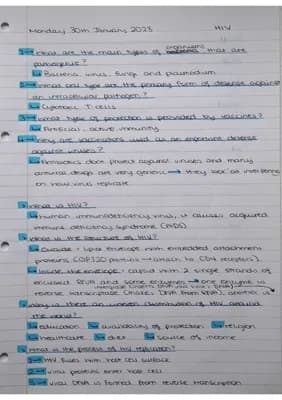 Monday 30th January 2023 HIV
1 → What are the main types of organisms that are
pathogenic?
↳ Bacteria, virus, fungi and plasmodium
2 → What cell type are the primary form of defense against
an intracellular pathogen?
↳ Cytotoxic T-cells
3 → What types of protection is provided by vaccines?
↳ Artificial-active immunity
4 → Why are vaccinations used as an important defense
against viruses?
↳ Antibiotics don't protect against viruses and many
antiviral drugs are very generic → they look at
on how virus replicate
What is HIV?
↳ Human immunodeficiency virus, it causes acquired
immune deficiency syndrome (AIDS)
What is the structure of HIV?
↳ Outside: lipid envelope with embedded attachment
proteins (GP120 proteins → attach to CD4 receptors).
↳ Inside the envelope: capsid with 2 single strands of
encased RNA and some enzymes → one enzyme is
reverse transcriptase (makes DNA from RNA), another is
Why is there an uneven distribution of HIV around
the world?
↳ education ↳ availability of protection ↳ religion
↳ healthcare ↳ diet ↳ source of income
What is the process of HIV replication?
1 → HIV fuses with host cell surface
2 → viral proteins enter host cell
3 → viral DNA is formed from reverse transcription